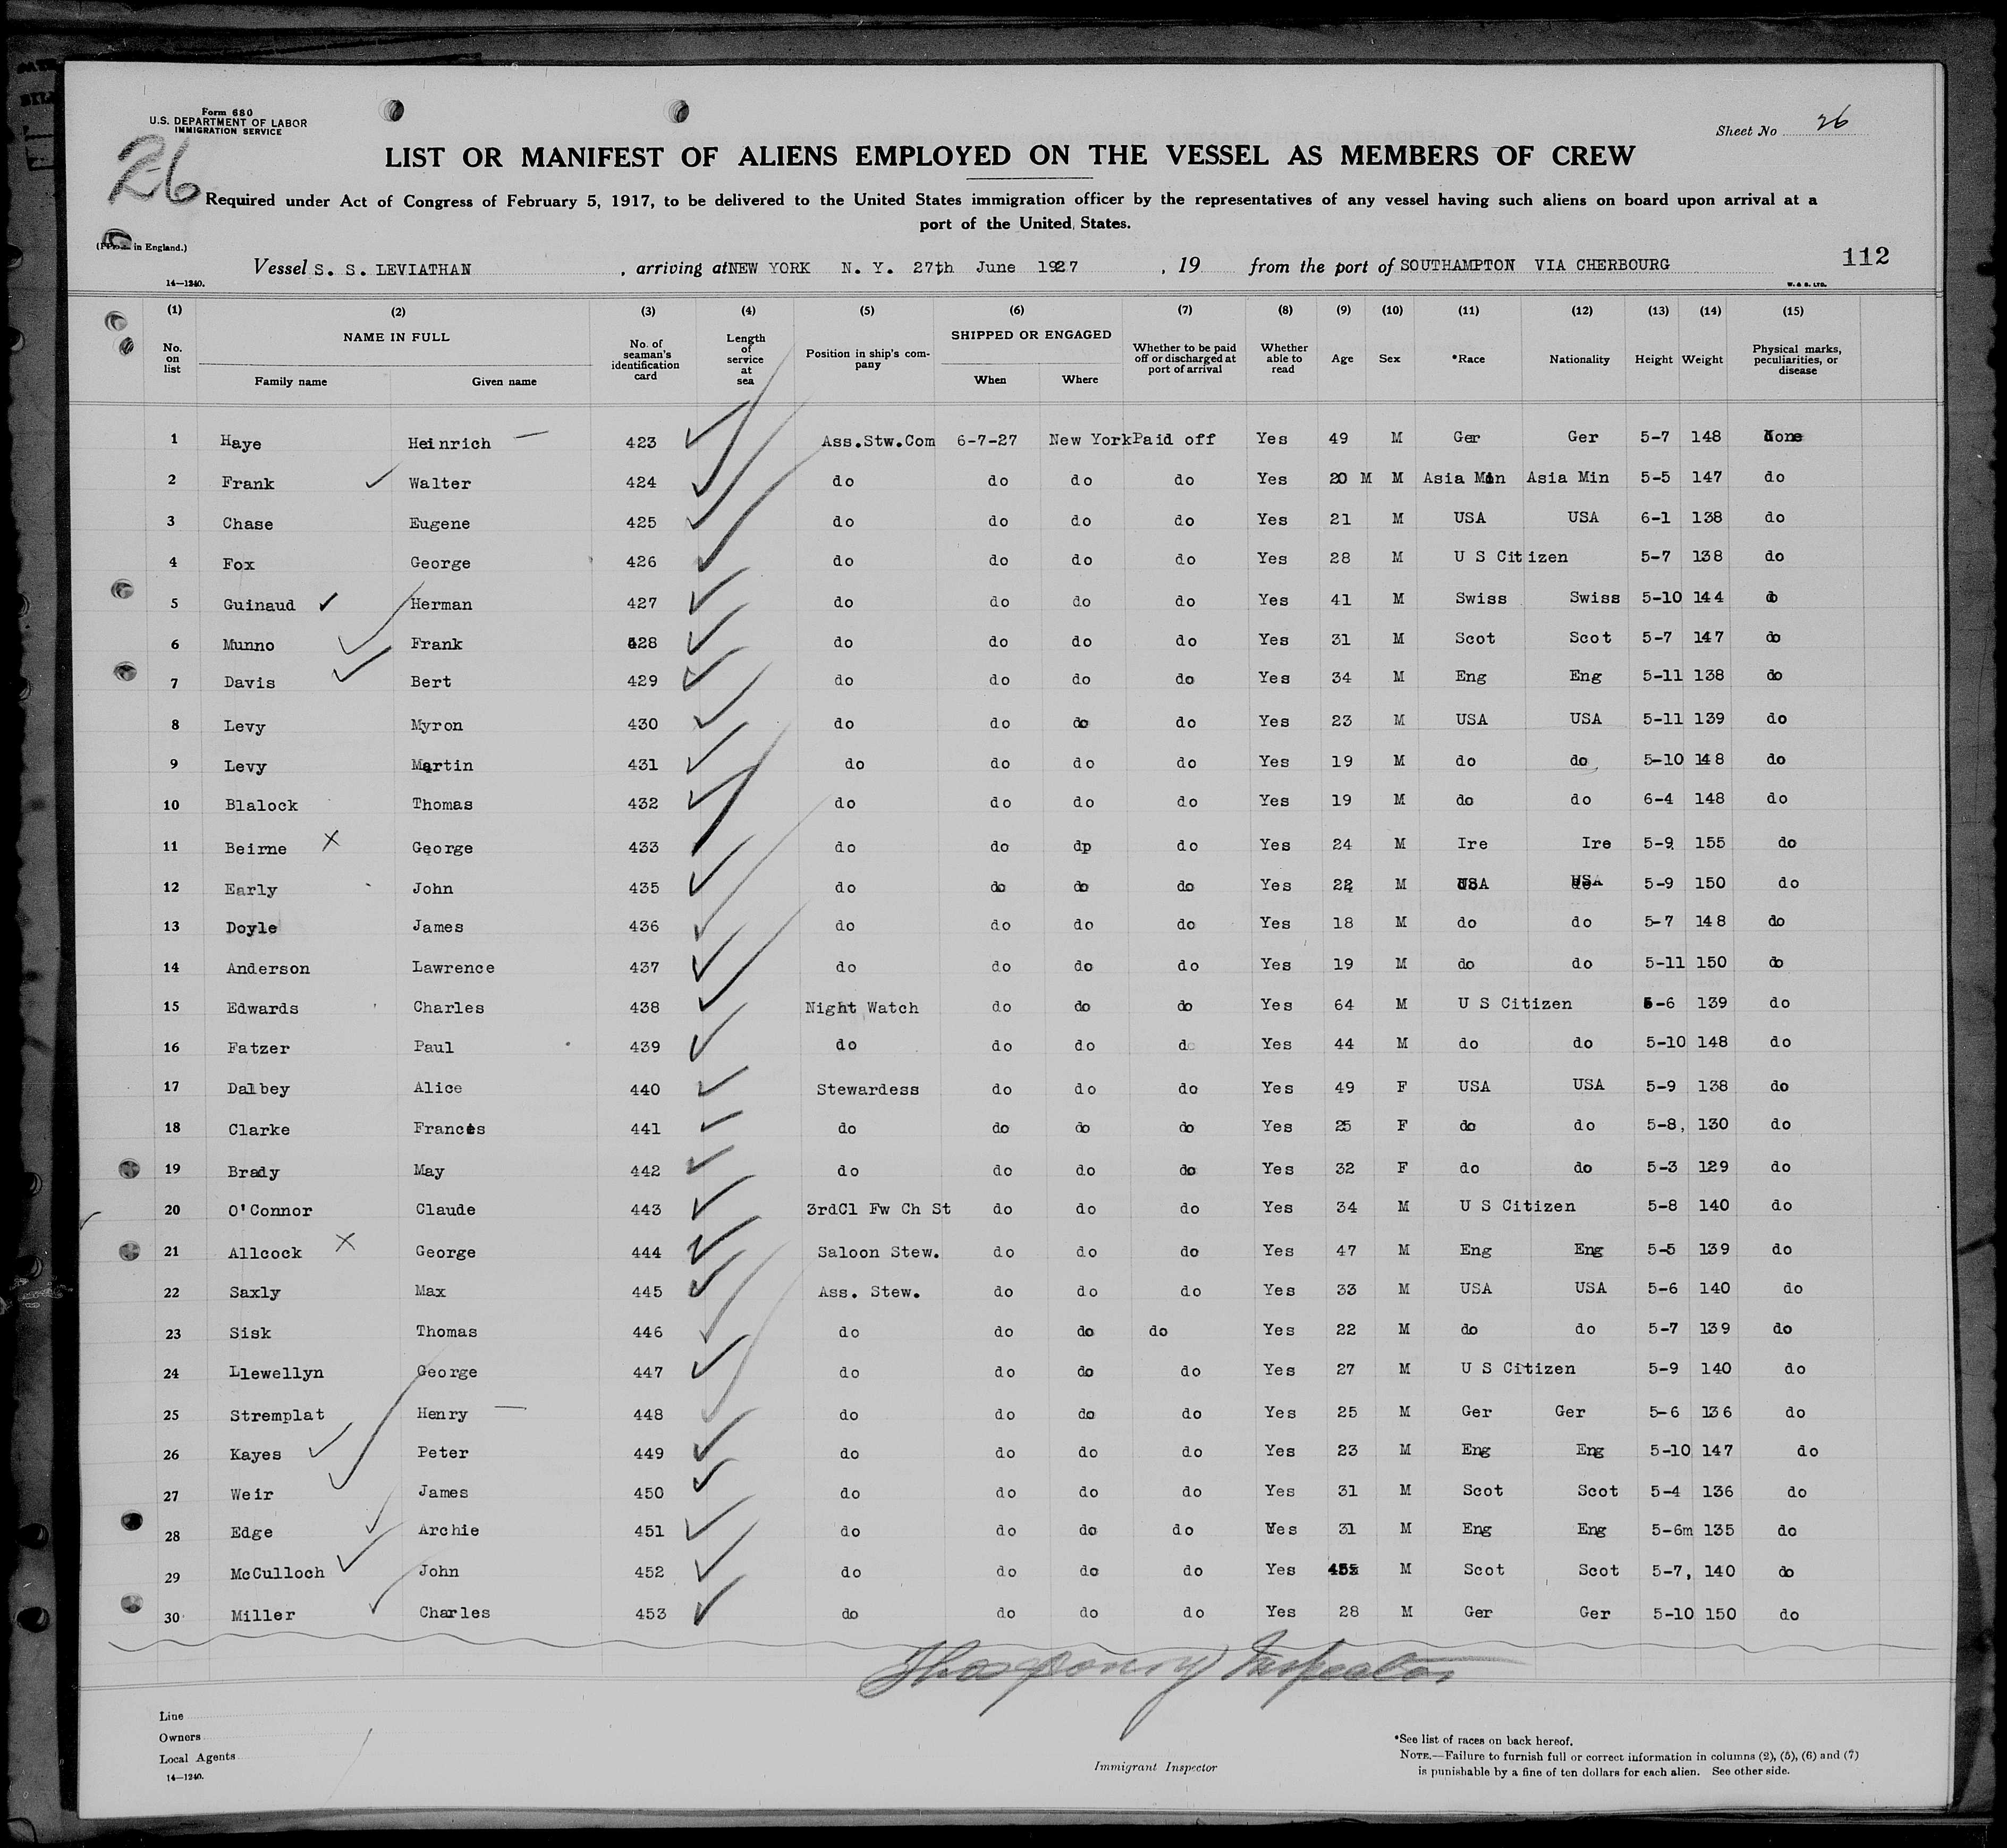 Form 680
U.S. DEPARTMENT OF LABOR
IMMIGRATION SERVICE
26
Sheet No 26
LIST OR MANIFEST OF ALIENS EMPLOYED ON THE VESSEL AS MEMBERS OF CREW
Required under Act of Congress of February 5, 1917, to be delivered to the United States immigration officer by the representatives of any vessel having such aliens on board upon arrival at a
port of the United States.
in England.)
Vessel S. S. LEVIATHAN , arriving at NEW YORK N. Y. 27th June 1927 , 19 from the port of SOUTHAMPTON VIA CHERBOURG 112
14—1240. W. & S. LTD.
(1) (2) (3) (4) (5) (6) (7) (8) (9) (10) (11) (12) (13) (14) (15)
No. on list NAME IN FULL Family name Given name No. of seaman's identification card Length of service at sea Position in ship's company SHIPPED OR ENGAGED When Where Whether to be paid off or discharged at port of arrival Whether able to read Age Sex *Race Nationality Height Weight Physical marks, peculiarities, or disease
1 Haye Heinrich 423 Ass.Stw.Com 6-7-27 New York Paid off Yes 49 M Ger Ger 5-7 148 None
2 Frank Walter 424 do do do do Yes 20 M M Asia Min Asia Min 5-5 147 do
3 Chase Eugene 425 do do do do Yes 21 M USA USA 6-1 138 do
4 Fox George 426 do do do do Yes 28 M U S Citizen 5-7 138 do
5 Guinaud Herman 427 do do do do Yes 41 M Swiss Swiss 5-10 144 do
6 Munno Frank 428 do do do do Yes 31 M Scot Scot 5-7 147 do
7 Davis Bert 429 do do do do Yes 34 M Eng Eng 5-11 138 do
8 Levy Myron 430 do do do do Yes 23 M USA USA 5-11 139 do
9 Levy Martin 431 do do do do Yes 19 M do do 5-10 148 do
10 Blalock Thomas 432 do do do do Yes 19 M do do 6-4 148 do
11 Beirne George 433 do do dp do Yes 24 M Ire Ire 5-9 155 do
12 Early John 435 do do do do Yes 22 M USA USA 5-9 150 do
13 Doyle James 436 do do do do Yes 18 M do do 5-7 148 do
14 Anderson Lawrence 437 do do do do Yes 19 M do do 5-11 150 do
15 Edwards Charles 438 Night Watch do do do Yes 64 M U S Citizen 5-6 139 do
16 Fatzer Paul 439 do do do do Yes 44 M do do 5-10 148 do
17 Dalbey Alice 440 Stewardess do do do Yes 49 F USA USA 5-9 138 do
18 Clarke Frances 441 do do do do Yes 25 F do do 5-8, 130 do
19 Brady May 442 do do do do Yes 32 F do do 5-3 129 do
20 O'Connor Claude 443 3rdCl Fw Ch St do do do Yes 34 M U S Citizen 5-8 140 do
21 Allcock George 444 Saloon Stew. do do do Yes 47 M Eng Eng 5-5 139 do
22 Saxly Max 445 Ass. Stew. do do do Yes 33 M USA USA 5-6 140 do
23 Sisk Thomas 446 do do do do Yes 22 M do do 5-7 139 do
24 Llewellyn George 447 do do do do Yes 27 M U S Citizen 5-9 140 do
25 Stremplat Henry 448 do do do do Yes 25 M Ger Ger 5-6 136 do
26 Kayes Peter 449 do do do do Yes 23 M Eng Eng 5-10 147 do
27 Weir James 450 do do do do Yes 31 M Scot Scot 5-4 136 do
28 Edge Archie 451 do do do do Yes 31 M Eng Eng 5-6m 135 do
29 McCulloch John 452 do do do do Yes M Scot Scot 5-7, 140 do
30 Miller Charles 453 do do do do Yes 28 M Ger Ger 5-10 150 do
Inspector
Line
Owners
Local Agents
14—1240.
Immigrant Inspector
*See list of races on back hereof.
NOTE.—Failure to furnish full or correct information in columns (2), (5), (6) and (7)
is punishable by a fine of ten dollars for each alien. See other side.